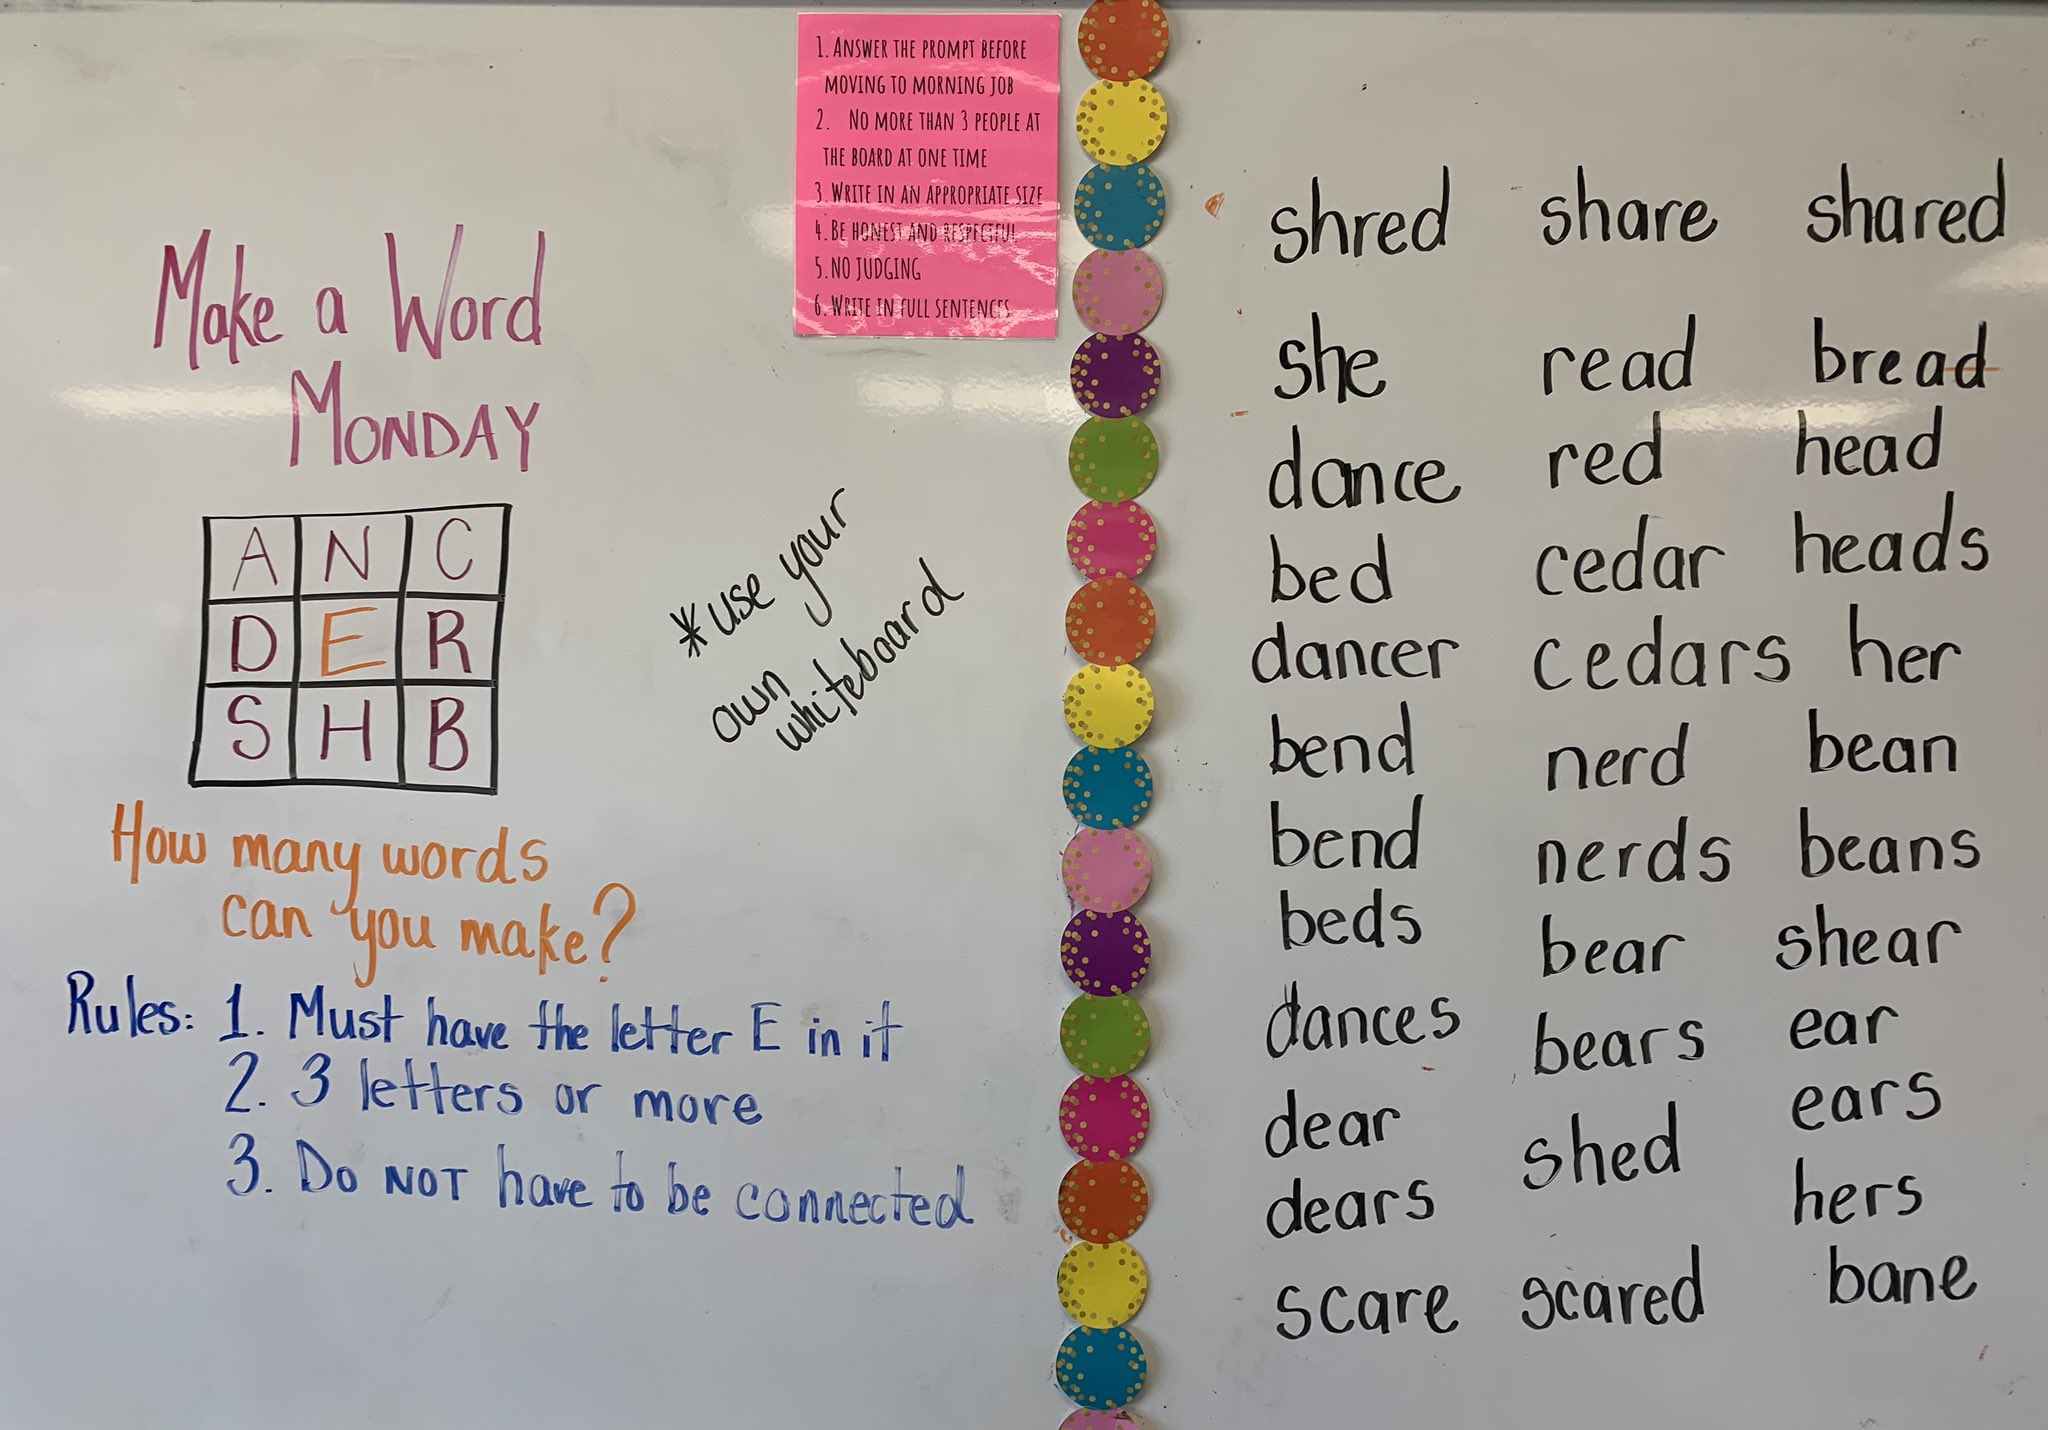 Make a Word
MONDAY
A N C
D E R
S H B
How many words
can you make?
Rules: 1. Must have the letter E in it
2. 3 letters or more
3. Do NOT have to be connected
*use your
own
whiteboard
1. ANSWER THE PROMPT BEFORE
MOVING TO MORNING JOB
2. NO MORE THAN 3 PEOPLE AT
THE BOARD AT ONE TIME
3. WRITE IN AN APPROPRIATE SIZE
4. BE HONEST AND RESPECTFUL
5. NO JUDGING
6. WRITE IN FULL SENTENCES
shred share shared
she read bread
dance red head
bed cedar heads
dancer cedars her
bend nerd bean
bend nerds beans
beds bear shear
dances bears ear
dear shed ears
dears hers
scare scared bane